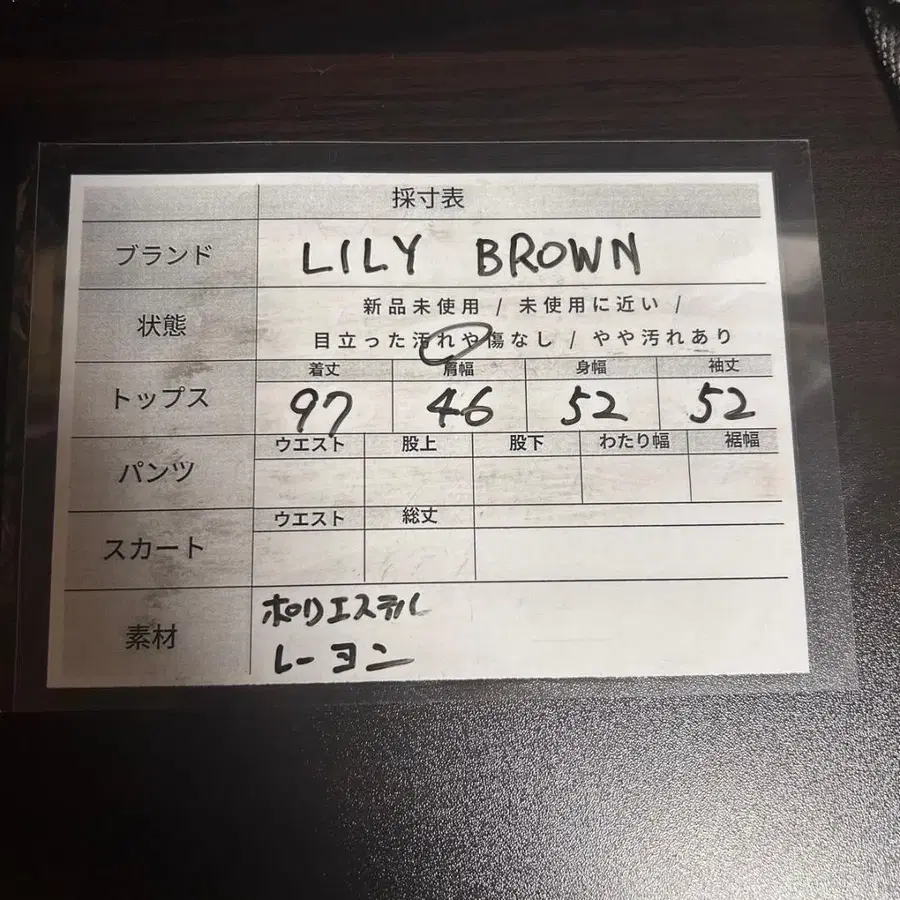 採寸表
ブランド LILY BROWN
状態 新品未使用 / 未使用に近い /
目立った汚れや傷なし / やや汚れあり
着丈 肩幅 身幅 袖丈
トップス 97 46 52 52
ウエスト 股上 股下 わたり幅 裾幅
パンツ
ウエスト 総丈
スカート
素材 ポリエステル
レーヨン